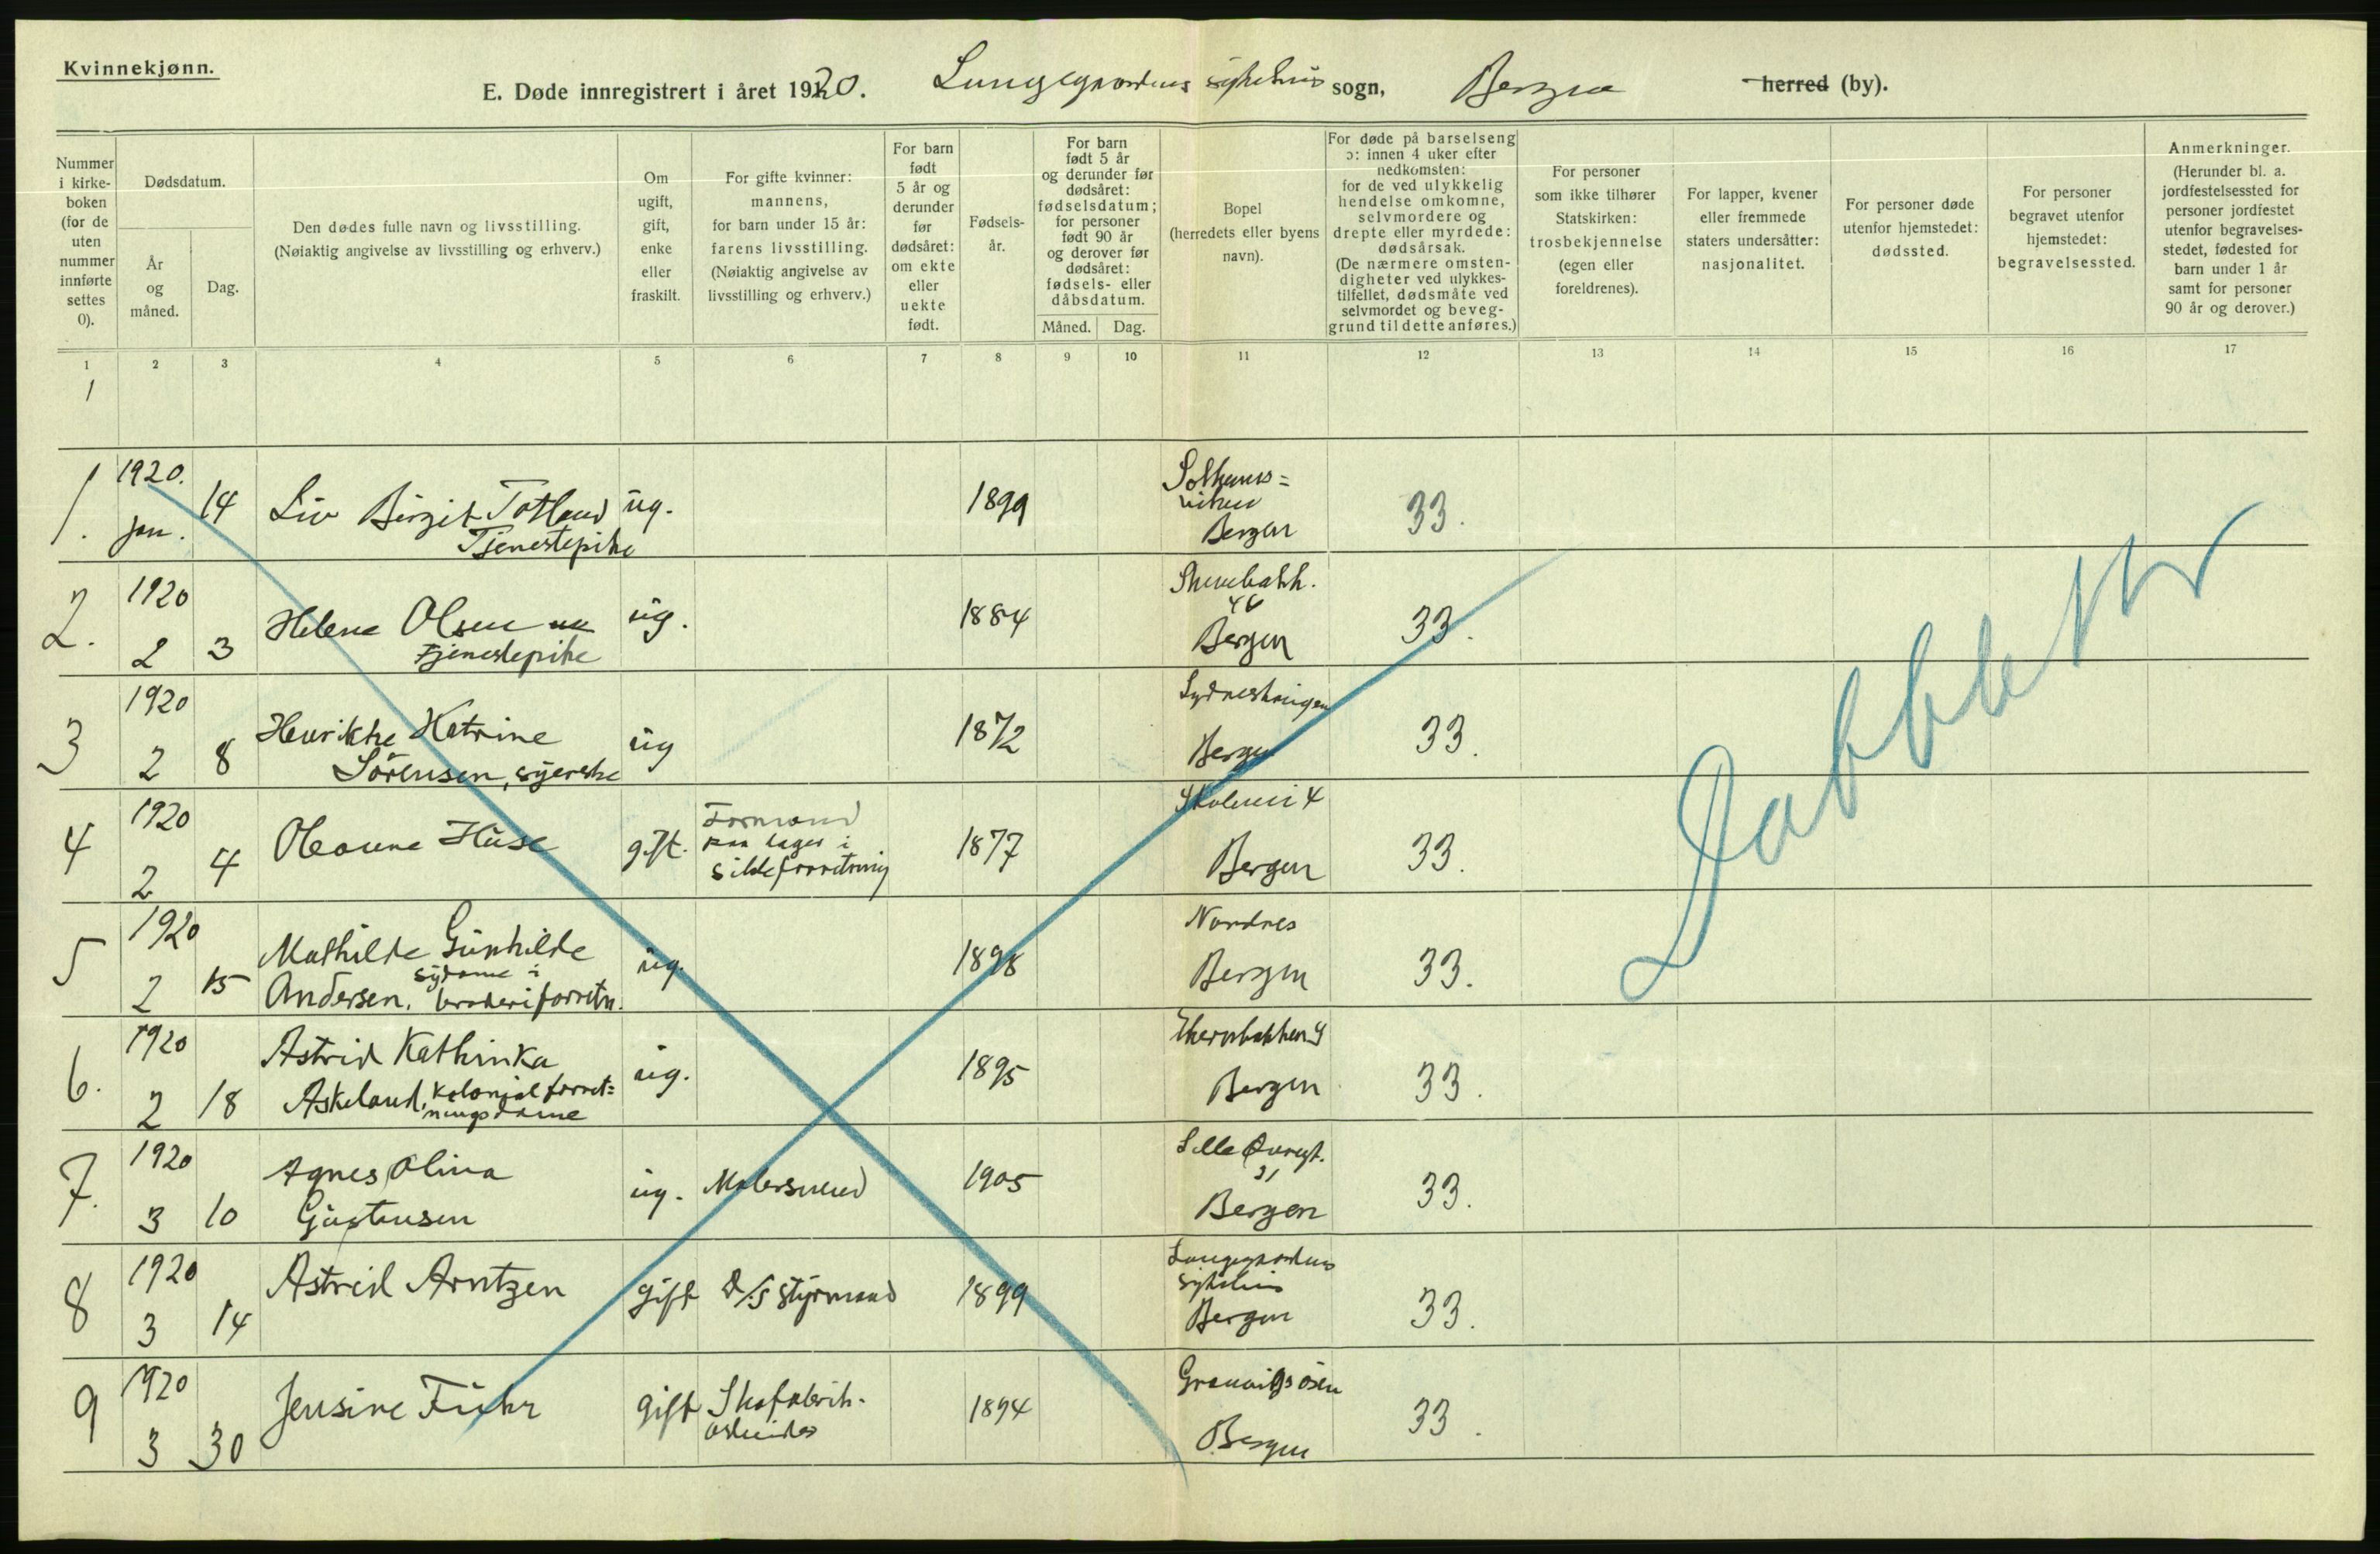 Kvinnekjønn.
E. Døde innregistrert i året 1920. Lungegaardens sykehus sogn, Bergen herred (by).
Nummer i kirke- boken (for de uten nummer innførte settes 0).
Dødsdatum.
År og måned.
Dag.
Den dødes fulle navn og livsstilling.
(Nøiaktig angivelse av livsstilling og erhverv.)
Om ugift, gift, enke eller fraskilt.
For gifte kvinner: mannens, for barn under 15 år: farens livsstilling. (Nøiaktig angivelse av livsstilling og erhverv.)
For barn født 5 år og derunder før dødsåret: om ekte eller uekte født.
Fødsels- år.
For barn født 5 år og derunder før dødsåret: fødselsdatum; for personer født 90 år og derover før dødsåret: fødsels- eller dåbsdatum.
Måned.
Dag.
Bopel (herredets eller byens navn).
For døde på barselseng ɔ: innen 4 uker efter nedkomsten: for de ved ulykkelig hendelse omkomne, selvmordere og drepte eller myrdede: dødsårsak. (De nærmere omsten- digheter ved ulykkes- tilfellet, dødsmåte ved selvmordet og beveg- grund til dette anføres.)
For personer som ikke tilhører Statskirken: trosbekjennelse (egen eller foreldrenes).
For lapper, kvener eller fremmede staters undersåtter: nasjonalitet.
For personer døde utenfor hjemstedet: dødssted.
For personer begravet utenfor hjemstedet: begravelsessted.
Anmerkninger. (Herunder bl. a. jordfestelsessted for personer jordfestet utenfor begravelses- stedet, fødested for barn under 1 år samt for personer 90 år og derover.)
1 2 3 4 5 6 7 8 9 10 11 12 13 14 15 16 17
1
1. 1920. jan. 14 Liv Birgit Totland Tjenestepike ug. 1899 Solheims= viken Bergen 33.
2. 1920 2 3 Helene Olsen tjenestepike ug. 1884 Bergen 33.
3 1920 2 8 Henrikke Katrine Sörensen, syerske ug 1872 Sydneshaugen Bergen 33.
4 1920 2 4 Oleanna Huse gift. Formand paa lager i sildeforretning 1877 Bergen 33.
5 1920 2 15 Mathilde Gunhilde Andersen. sydame i broderiforretn. ug. 1898 Nordnes Bergen 33.
6. 1920 2 18 Astrid Kathinka Askeland, kolonialforret= ningsdame ug. 1895 Bergen 33.
7. 1920 3 10 Agnes Olina Gustavsen ug. Malersvend 1905 Lille Øvregt. 31 Bergen 33.
8 1920 3 14 Astrid Arntzen gift D/S styrmand 1899 Lungegaardens sykehus Bergen 33.
9 1920 3 30 Jensine Führ gift Skofabrik- arbeider 1894 Bergen 33.
Dobbelt